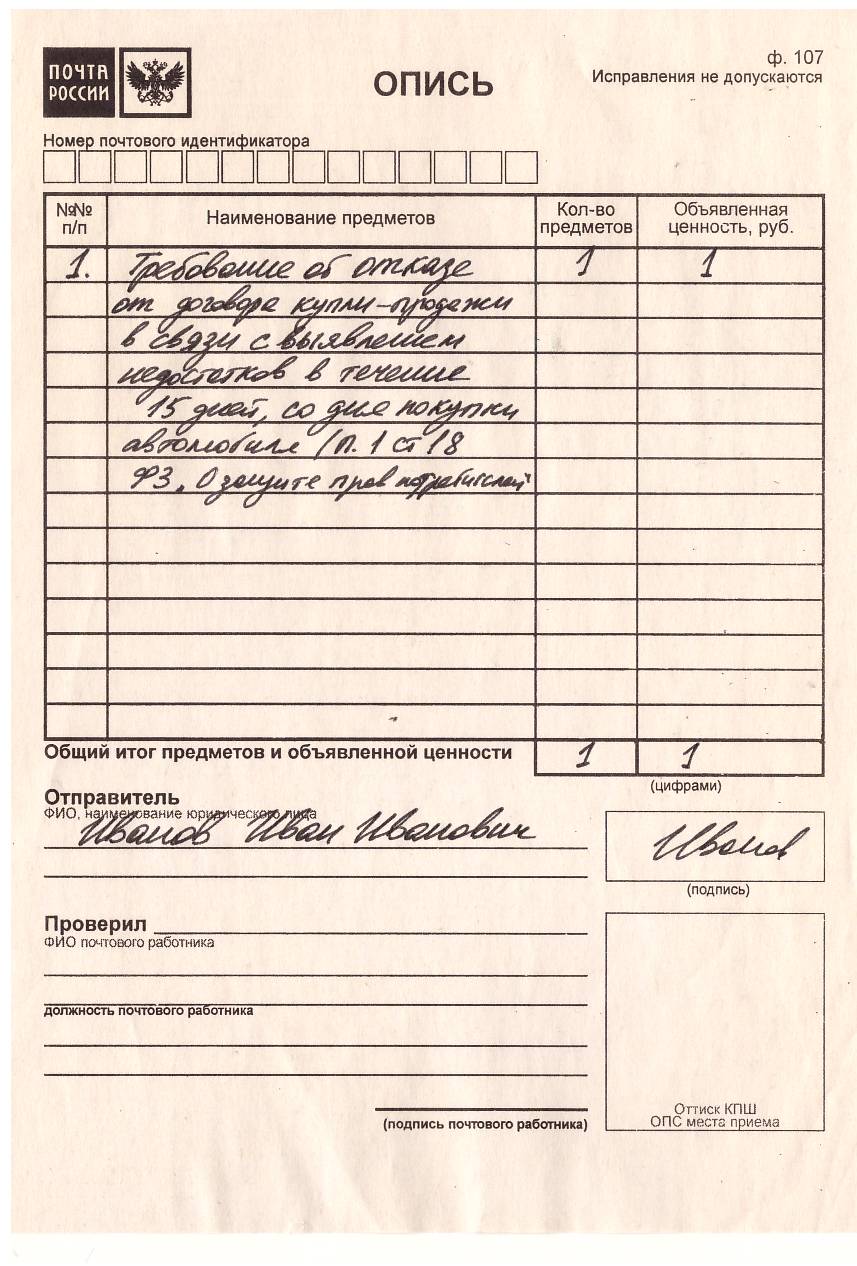 ПОЧТА
РОССИИ
ф. 107
Исправления не допускаются
ОПИСЬ
Номер почтового идентификатора
№№ п/п
Наименование предметов
Кол-во предметов
Объявленная ценность, руб.
1. Требование об отказе 1 1
от договора купли-продажи
в связи с выявлением
недостатков в течение
15 дней, со дня покупки
автомобиля /п. 1 ст 18
ФЗ „О защите прав потребителей"
Общий итог предметов и объявленной ценности 1 1
(цифрами)
Отправитель
ФИО, наименование юридического лица
Иванов Иван Иванович
Иванов
(подпись)
Проверил
ФИО почтового работника
должность почтового работника
(подпись почтового работника)
Оттиск КПШ
ОПС места приема